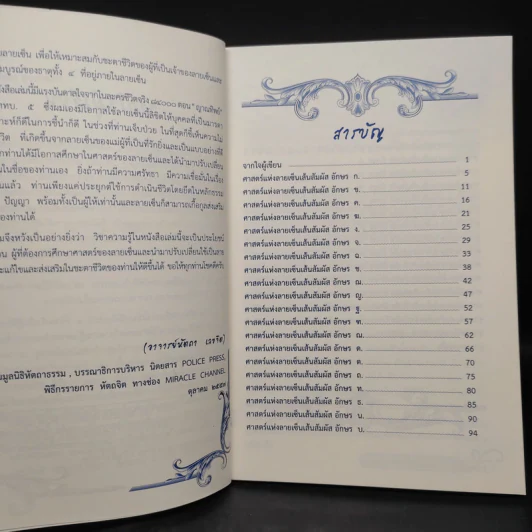 ลายเซ็น เพื่อให้เหมาะสมกับชะตาชีวิตของผู้ที่เป็นเจ้าของลายเซ็นและ
มบูรณ์ของธาตุทั้ง ๔ ที่อยู่ภายในลายเซ็น
ังสือเล่มนี้มีแรงบันดาลใจจากในละครชีวิตจริง
ทบ. ๕ ซึ่งผมเองมีโอกาสใช้ลายเซ็นนี้ลิขิตให้บุคคลที่เป็นมารดา
าะห์ก็ดีในการชี้นำก็ดี ในช่วงที่ท่านเจ็บป่วย ในที่สุดก็ขึ้นต้นความไม่
ชีวิต ที่เกิดขึ้นจากลายเซ็นของแม่ผู้ที่เป็นที่รักยิ่งและเป็นแบบอย่างที่ดี
ท่านได้มีโอกาสศึกษาในศาสตร์ของลายเซ็นและได้นำมาปรับเปลี่ยน
ในชื่อของท่านเอง ยิ่งถ้าท่านมีความศรัทธา มีความเชื่อมั่นในเรื่อง
นแล้ว ท่านเพียงแค่ประยุกต์ใช้การดำเนินชีวิตโดยยึดในหลักธรรม
ปัญญา พร้อมทั้งเป็นผู้ให้เท่านั้นและลายเซ็นก็สามารถเกื้อกูลส่งเสริม
องท่านได้
มจึงหวังเป็นอย่างยิ่งว่า วิชาความรู้ในหนังสือเล่มนี้จะเป็นประโยชน์
น ผู้ที่ต้องการศึกษาศาสตร์ของลายเซ็นและนำมาปรับเปลี่ยนใช้เป็นสาย
ะแก้ไขและส่งเสริมในชะตาชีวิตของท่านให้ดีขึ้นได้ ขอให้ทุกท่านโชคดีครับ
มูลนิธิหัตถาธรรม , บรรณาธิการบริหาร นิตยสาร POLICE PRESS,
พิธีกรรายการ หัตถจิต ทางช่อง MIRACLE CHANNEL
ตุลาคม ๒๕๕๓
สารบัญ
จากใจผู้เขียน 1
ศาสตร์แห่งลายเซ็นเส้นสัมผัส อักษร ก. 5
ศาสตร์แห่งลายเซ็นเส้นสัมผัส อักษร ข. 11
ศาสตร์แห่งลายเซ็นเส้นสัมผัส อักษร ค. 16
ศาสตร์แห่งลายเซ็นเส้นสัมผัส อักษร ฆ. 21
ศาสตร์แห่งลายเซ็นเส้นสัมผัส อักษร ง. 25
ศาสตร์แห่งลายเซ็นเส้นสัมผัส อักษร จ. 29
ศาสตร์แห่งลายเซ็นเส้นสัมผัส อักษร ฉ. 33
ศาสตร์แห่งลายเซ็นเส้นสัมผัส อักษร ช. 38
ศาสตร์แห่งลายเซ็นเส้นสัมผัส อักษร ฌ. 42
ศาสตร์แห่งลายเซ็นเส้นสัมผัส อักษร ญ. 47
ศาสตร์แห่งลายเซ็นเส้นสัมผัส อักษร ฐ. 52
ศาสตร์แห่งลายเซ็นเส้นสัมผัส อักษร ฑ. 57
ศาสตร์แห่งลายเซ็นเส้นสัมผัส อักษร ฒ. 62
ศาสตร์แห่งลายเซ็นเส้นสัมผัส อักษร ด. 66
ศาสตร์แห่งลายเซ็นเส้นสัมผัส อักษร ต. 70
ศาสตร์แห่งลายเซ็นเส้นสัมผัส อักษร ถ. 75
ศาสตร์แห่งลายเซ็นเส้นสัมผัส อักษร ท. 80
ศาสตร์แห่งลายเซ็นเส้นสัมผัส อักษร ธ. 85
ศาสตร์แห่งลายเซ็นเส้นสัมผัส อักษร น. 90
ศาสตร์แห่งลายเซ็นเส้นสัมผัส อักษร บ. 94